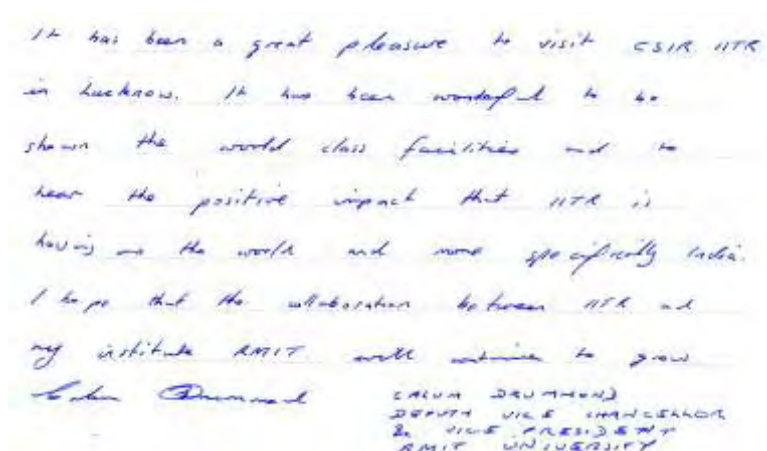 It has been a great pleasure to visit CSIR IITR
in Lucknow. It has been wonderful to be
shown the world class facilities and to
hear the positive impact that IITR is
having on the world and more specifically India.
I hope that the collaboration between IITR and
my institute RMIT will continue to grow
Calum Drummond
CALUM DRUMMOND
DEPUTY VICE CHANCELLOR
& VICE PRESIDENT
RMIT UNIVERSITY